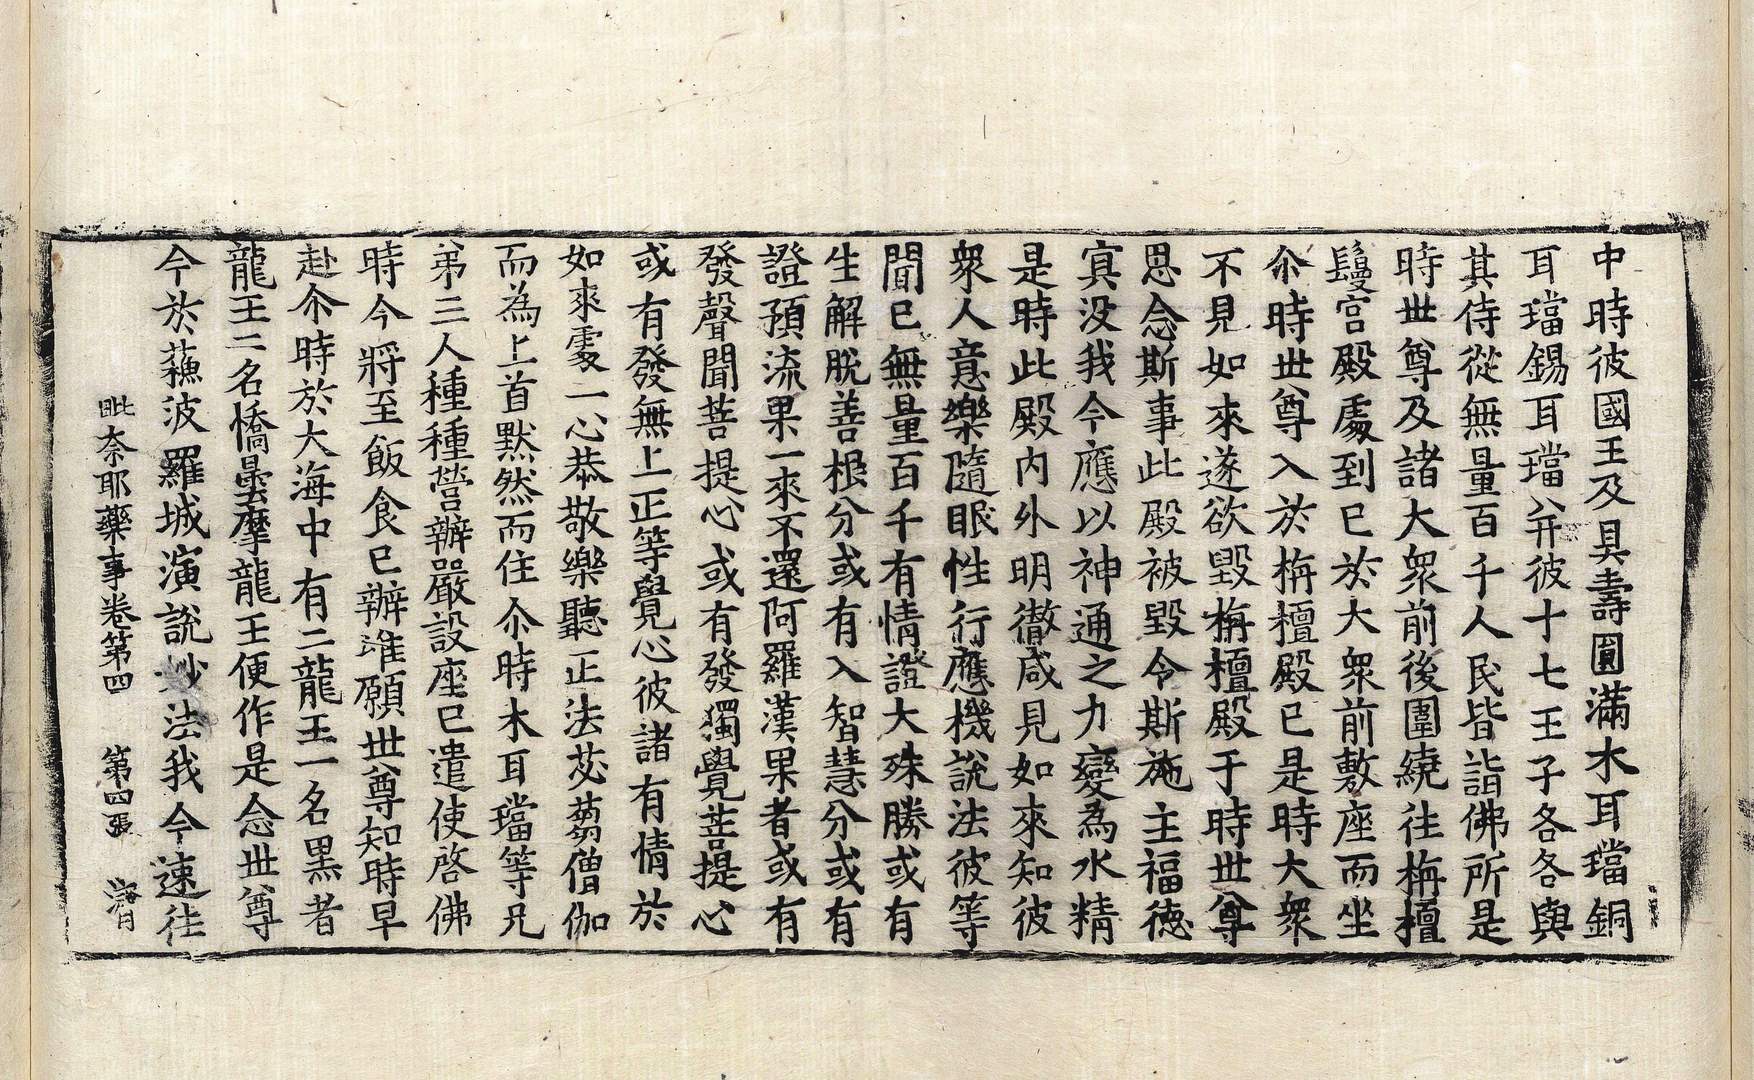 中時彼國王及具壽圓滿木耳璫銅
耳璫錫耳璫并彼十七王子各各與
其侍從無量百千人民皆詣佛所是
時世尊及諸大衆前後圍繞往栴檀
鬘宮殿處到已於大衆前敷座而坐
尒時世尊入於栴檀殿已是時大衆
不見如來遂欲毀栴檀殿于時世尊
思念斯事此殿被毀令斯施主福德
寘没我今應以神通之力變為水精
是時此殿内外明徹咸見如來知彼
衆人意樂隨眠性行應機說法彼等
聞已無量百千有情證大殊勝或有
生解脫善根分或有入智慧分或有
證預流果一來不還阿羅漢果者或有
發聲聞菩提心或有發獨覺菩提心
或有發無上正等覺心彼諸有情於
如來處一心恭敬樂聽正法苾蒭僧伽
而為上首默然而住尒時木耳璫等兄
弟三人種種營辦嚴設座已遣使啓佛
時今將至飯食已辦唯願世尊知時早
赴尒時於大海中有二龍王一名黑者
龍王二名憍曇摩龍王便作是念世尊
今於蘓波羅城演說妙法我今速往
毗奈耶藥事卷第四 第四張